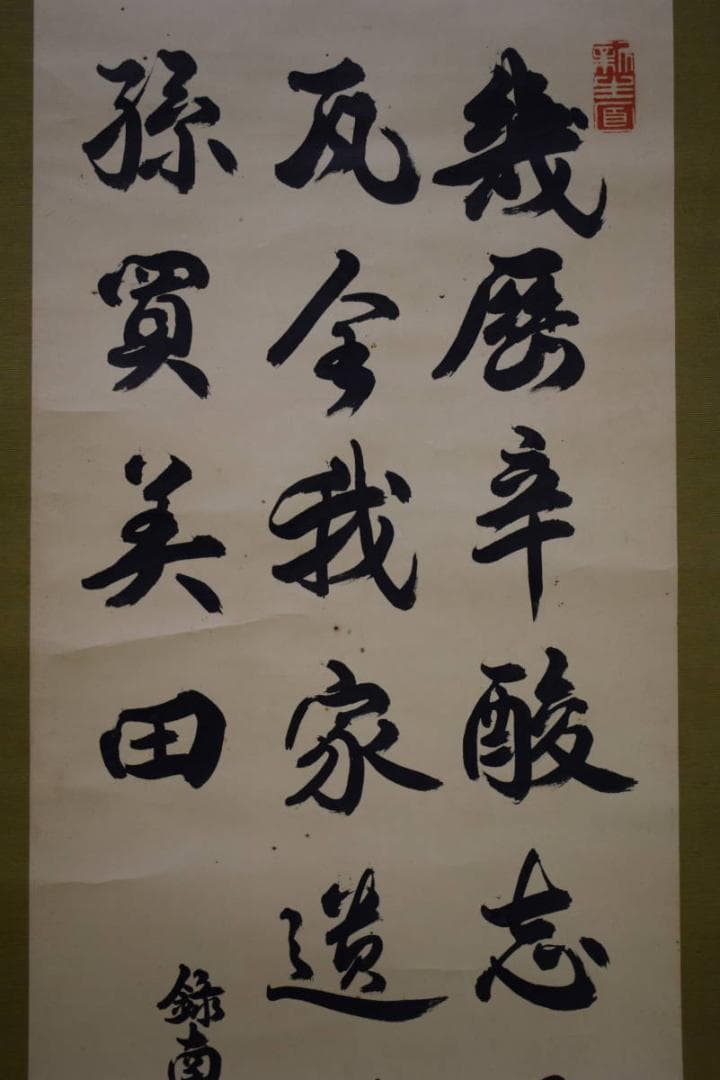 幾歴辛酸志
瓦全我家遺
孫買美田
録南